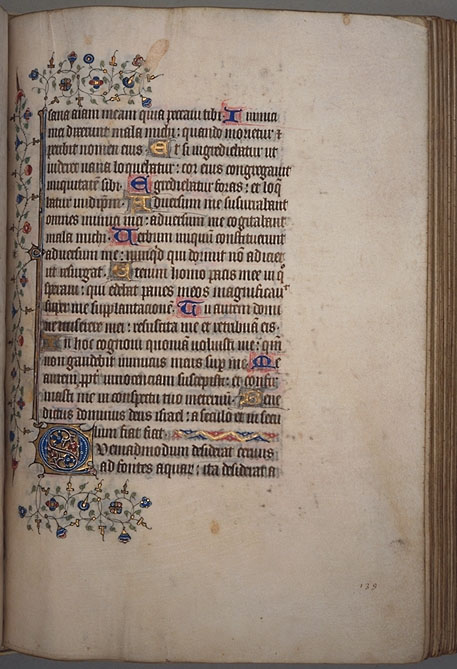 sana aīam meam quia peccaui tibi. Inimici
mei dixerunt mala michi: quando morietur ⁊
peribit nomen eius. Et si ingrediebatur ut
uideret uana loquebatur: cor eius congregauit
iniquitatem sibi. Egrediebatur foras: et loq
batur in idipm̄. Aduersum me susurrabant
omnes inimici mei: aduersum me cogitabant
mala michi. Uerbum iniquum constituerunt
aduersum me: nunqͥd qui dormit nō adiciet
ut resurgat. Etenim homo pacis mee in q
speraui: qui edebat panes meos magnificauͭ
super me supplantacionē. Tu autem domi
ne miserere mei: resuscita me et retribuā eis.
In hoc cognoui quoniam uoluisti me: qm̄
non gaudebit inimicus meus suꝑ me. Me
autem ppt̄ innocenciam suscepisti: et confir
masti me in conspectu tuo in eternū. Bene
dictus dominus deus israel: a seculo et in secu
lum fiat fiat.
Quemadmodum desiderat ceruus
ad fontes aquaꝝ: ita desiderat a
139